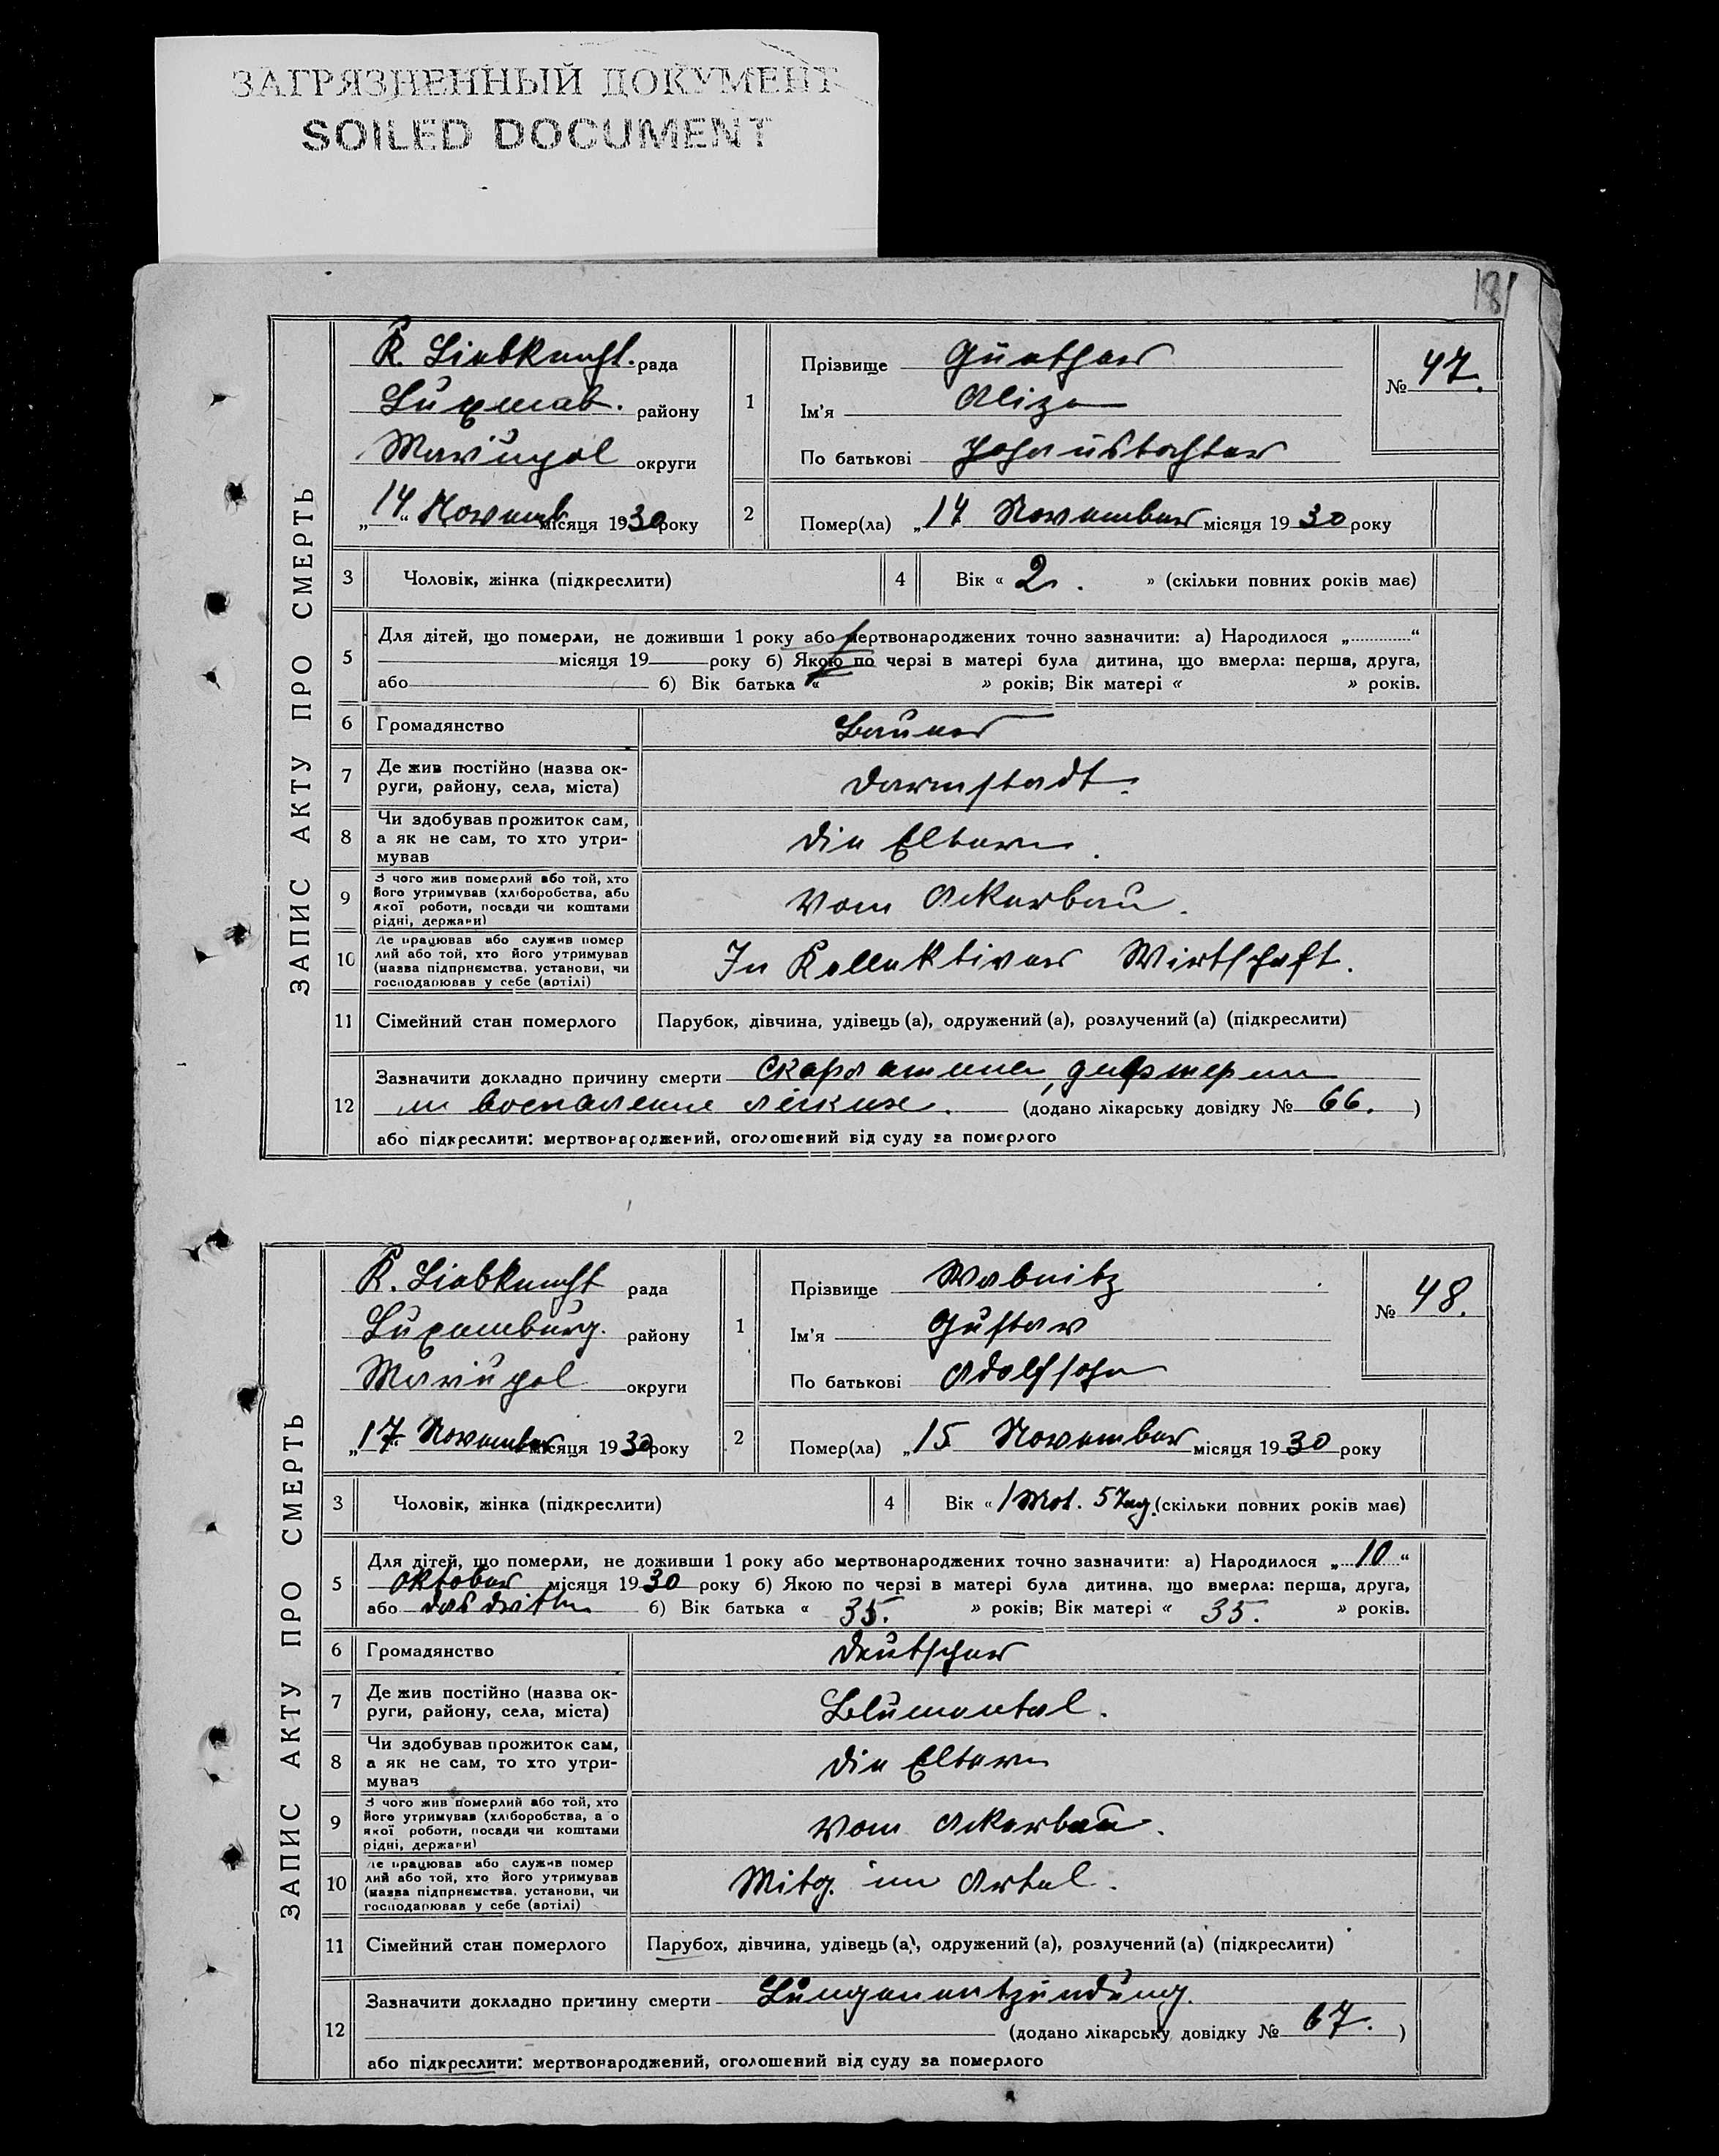 ЗАГРЯЗНЕННЫЙ ДОКУМЕНТ
SOILED DOCUMENT
181
ЗАПИС АКТУ ПРО СМЕРТЬ
K. Liebknecht. рада
Luxemb. району
Mariupol округи
„14.“ Novemb. місяця 1930 року
1
Прізвище Günther
Ім'я Aliza
По батькові Johanstochter
№ 47.
2 Помер(ла) „14 November місяця 1930 року
3 Чоловік, жінка (підкреслити)
4 Вік « 2. » (скільки повних років має)
5 Для дітей, що померли, не доживши 1 року або мертвонароджених точно зазначити: а) Народилося „ “
місяця 19 року б) Якою по черзі в матері була дитина, що вмерла: перша, друга,
або б) Вік батька « » років; Вік матері « » років.
6 Громадянство Bauer
7 Де жив постійно (назва ок-
руги, району, села, міста) Darmstadt.
8 Чи здобував прожиток сам,
а як не сам, то хто утри-
мував die Eltern.
9 З чого жив померлий або той, хто
його утримував (хліборобства, або
якої роботи, посади чи коштами
рідні, держави) Vom Ackerbau.
10 Де працював або служив помер
лий або той, хто його утримував
(назва підприємства, установи, чи
господарював у себе (артілі) In Kollektiver Wirtschaft.
11 Сімейний стан померлого Парубок, дівчина, удівець (а), одружений (а), розлучений (а) (підкреслити)
12 Зазначити докладно причину смерти скарлатина, дифтерии
и воспаление лёгких. (додано лікарську довідку № 66. )
або підкреслити: мертвонароджений, оголошений від суду за померлого
ЗАПИС АКТУ ПРО СМЕРТЬ
K. Liebknecht рада
Luxemburg. району
Mariupol округи
„17.“ November місяця 1930 року
1
Прізвище Wabnitz
Ім'я Gustav
По батькові Adolfsohn
№ 48.
2 Помер(ла) „15 November місяця 1930 року
3 Чоловік, жінка (підкреслити)
4 Вік « 1 Mot. 5 Tag. (скільки повних років має)
5 Для дітей, що померли, не доживши 1 року або мертвонароджених точно зазначити: а) Народилося „10“
Oktober місяця 1930 року б) Якою по черзі в матері була дитина, що вмерла: перша, друга,
або das dritte б) Вік батька « 35. » років; Вік матері « 35. » років.
6 Громадянство Deutscher
7 Де жив постійно (назва ок-
руги, району, села, міста) Blumental.
8 Чи здобував прожиток сам,
а як не сам, то хто утри-
мував die Eltern
9 З чого жив померлий або той, хто
його утримував (хліборобства, а о
якої роботи, посади чи коштами
рідні, держави) Vom Ackerbau.
10 Де працював або служив помер
лий або той, хто його утримував
(назва підприємства, установи, чи
господарював у себе (артілі) Mitg. im Artel.
11 Сімейний стан померлого Парубок, дівчина, удівець (а), одружений (а), розлучений (а) (підкреслити)
12 Зазначити докладно причину смерти Lungenentzündung.
(додано лікарську довідку № 67. )
або підкреслити: мертвонароджений, оголошений від суду за померлого